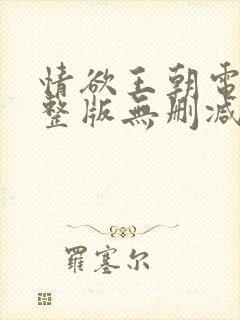 情欲王朝電
整版無刪减
羅塞尔